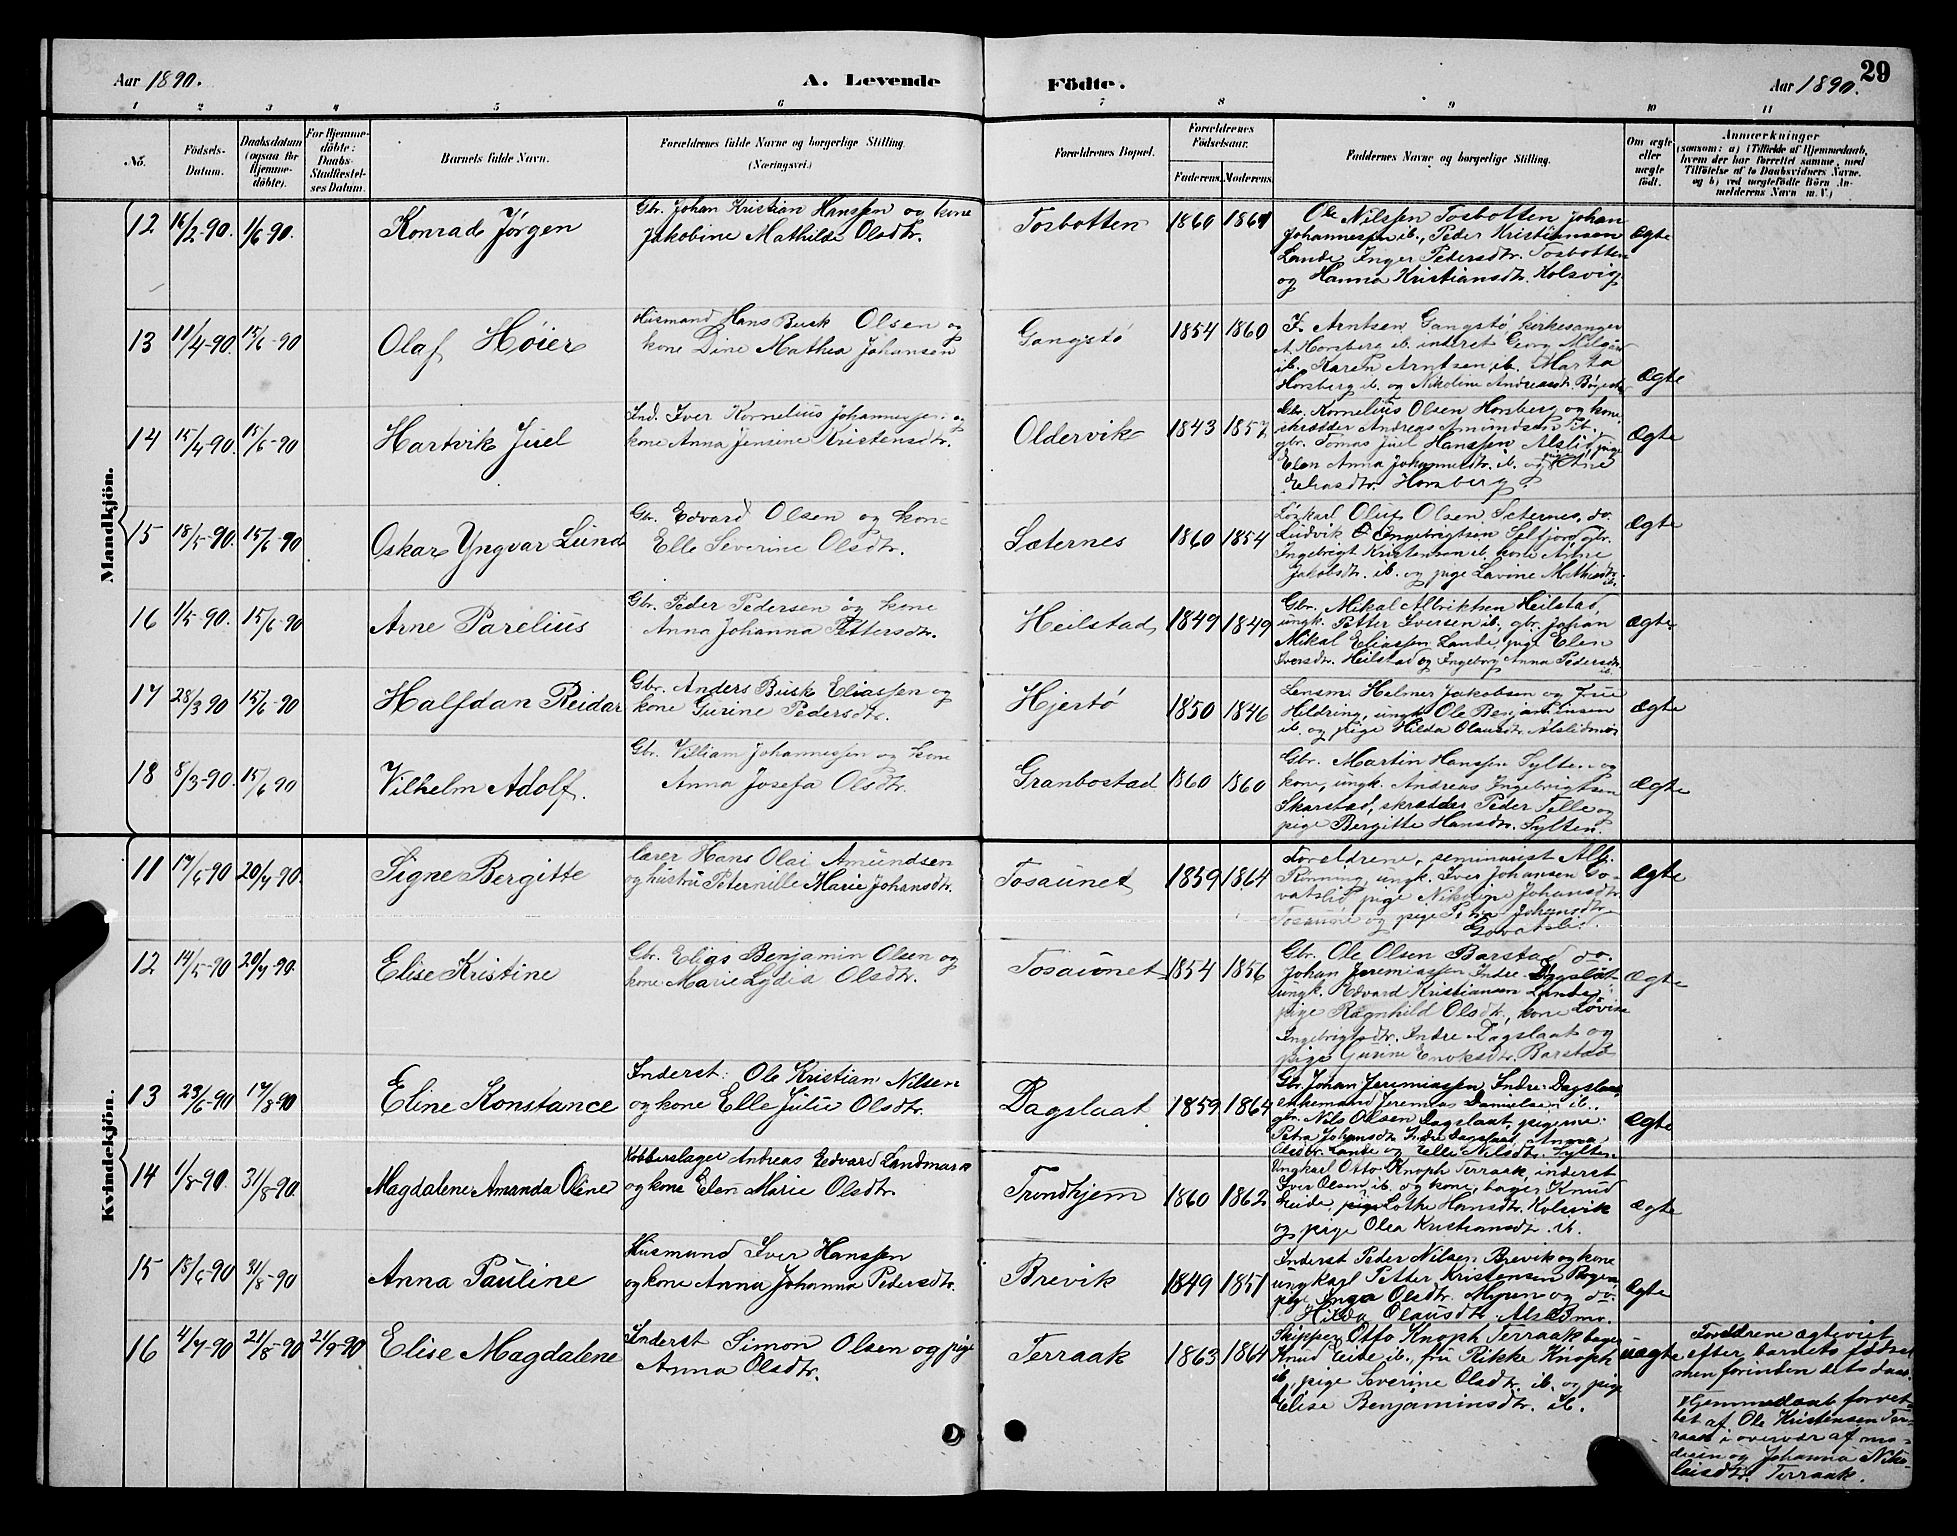 Aar 1890.
A. Levende Födte.
Aar 1890.
29
1 2 3 4 5 6 7 8 9 10 11
No.
Födsels-
Datum.
Daabsdatum
(ogsaa for
Hjemme-
döbte).
For Hjemme-
döbte:
Daabs-
Stadfæstel-
ses Datum.
Barnets fulde Navn.
Forældrenes fulde Navne og borgerlige Stilling.
(Næringsvei.)
Forældrenes Bopæl.
Forældrenes
Födselsaar.
Faderens. Moderens.
Faddernes Navne og borgerlige Stilling.
Om ægte
eller
uægte
födt.
Anmærkninger
(saasom: a) i Tilfælde af Hjemmedaab,
hvem der har forrettet samme, med
Tilföielse af to Daabsvidners Navne,
og b) ved uægtefödte Börn An-
melderens Navn m. V.)
Mandkjön.
12 16/2-90. 1/6 90. Konrad Jørgen
Gbr. Johan Kristian Hanssen og kone
Jakobine Mathilde Olsdtr.
Tosbotten 1860 1861
Ole Nilssen Tosbotten, Johan
Johannessen ib., Peder Kristiansen
Lande, Inger Pedersdtr. Tosbotten
og Hanna Kristiansdtr. Kolsvig
Ægte
13 11/4-90. 15/6-90 Olaf Høier
Husmand Hans Busk Olsen og
kone Dine Mathea Johansen
Gangstø 1854 1860
F. Arntsen Gangstø, kirkesanger
Horsberg ib. inderst Georg
ib. Karen Arntsen, ib. Marta
Horsberg ib. og Nikoline Andreasdtr.
Ægte
14 15/4-90. 15/6-90 Hartvik Juel
Ind. Iver Kornelius Johannessen og
kone Anna Jensine Kristensdtr.
Oldervik 1843 1857
Gbr. Kornelius Olsen Horsberg og kone,
skrædder Andreas Amundsen ib.,
gbr. Tomas Juel Hanssen Alslid, pige
Elen Anna ib. og pige Ane
Eliasdtr. Horsberg.
Ægte
15 18/5-90. 15/6-90 Oskar Yngvar Lund
Gbr. Edvard Olsen og kone
Elle Severine Olsdtr.
Sæternes 1860 1854
Løskarl Oluf Olsen Sæternes, do.
Ludvik Ingebrigtsen Selfjord, gbr.
Ingebrigt Kristensen ib. kone Anne
Jakobsdtr. ib. og pige Lavine Mathisdtr.
ib.
Ægte
16 1/5-90. 15/6-90 Arne Parelius
Gbr. Peder Pedersen og kone
Anna Johanna Pettersdtr.
Heilstad 1849 1849
Gbr. Mikal Albriktsen Heilstad,
ungk. Petter Iversen ib. gbr. Johan
Mikal Eliassen Lande, pige Elen
Iversdtr. Heilstad og Ingeborg Anna Pedersdtr.
ib.
Ægte
17 28/3 90 15/6-90 Halfdan Reidar
Gbr. Anders Busk Eliassen og
kone Gurine Pedersdtr.
Hjertø 1850 1846
Lensm. Helmer Jakobsen og Frue
Hildring, ungk. Ole Benjaminsen
ib. og pige Hilda Olausdtr. Alslidmo
Ægte
18 8/3-90. 15/6 90 Vilhelm Adolf.
Gbr. Villiam Johannessen og kone
Anna Josefa Olsdtr.
Granbostad 1860 1860
Gbr. Martin Hanssen Sylten og
kone, ungk. Andreas Ingebrigtsen
Skarstad, skrædder Peder Felle og
pige Bergitte Hansdtr. Sylten.
Ægte
Kvindekjön.
11 17/5-90 20/7 90. Signe Bergitte
lærer Hans Olai Amundsen
og hustru Peternille Marie Johansdtr.
Tosaunet 1859 1864
Foreldrene, seminarist Alf.
Rønning, ungk. Iver Johansen Go-
vatslid, pige Nikoline Johansdtr.
Tosaune og pige Johansdtr.
Govatslid.
Ægte
12 14/5-90 20/7-90. Elise Kristine
Gbr. Elias Benjamin Olsen og
kone Marie Lydia Olsdtr.
Tosaunet 1854 1856
Gbr. Ole Olsen Barstad, do.
Johan Jeremiassen Indre Dagslaat,
ungk. Edvard Kristiansen Lande,
pige Ragnhild Olsdtr., kone Lovise
Ingebrigtsdtr. Indre Dagslaat og
pige Gurine Enoksdtr. Barstad
Ægte
13 23/6-90 17/8-90 Eline Konstance
Inderst. Ole Kristian Nilsen
og kone Elle Julie Olsdtr.
Dagslaat 1859 1864
Gbr. Johan Jeremiassen Indre Dagslaat,
enkemand Jeremias Danielsen ib.,
gbr. Nils Olsen Dagslaat, pigerne
Petra Johansdtr. Indre Dagslaat, Anna
Olsdtr. Lande og Elle Nilsdtr. Sylten
Ægte
14 1/8-90. 31/8-90. Magdalene Amanda Oline
Kobberslager Andreas Edvard Landmark
og kone Elen Marie Olsdtr.
Trondhjem 1860 1862
Ungkarl Otto Knoph Terraak, inderst
Iver Olsen ib. og kone, bager Knud
Eeide, pige Lothe Hansdtr. Kolsvik
og pige Olea Kristiansdtr. ib.
Ægte
15 18/6-90 31/8-90 Anna Pauline
Husmand Iver Hanssen
og kone Anna Johanna Pedersdtr.
Brevik 1849 1851
Inderst Peder Nilsen Brevik og kone
ungkarl Petter Kristensen Bogen,
pige Inga Olsdtr. Myren og do.
Hilda Olausdtr. Alslidmo.
Ægte
16 4/7-90 21/8-90 21/9-90 Elise Magdalene
Inderst Simon Olsen og pige
Anna Olsdtr.
Terraak 1863 1864
Skipper Otto Knoph Terraak, bager
Knud Eeide ib., fru Rikke Knoph
ib., pige Severine Olsdtr. ib. og pige
Elise Benjaminsdtr. ib.
uægte
Foreldrene ægteviet
efter barnets fødsel
men forinden dets daab.
Hjemmedaab forret-
tet af Ole Kristensen Ter-
raak i overvær af mo-
deren og Johanna Niko-
laisdtr. Terraak.